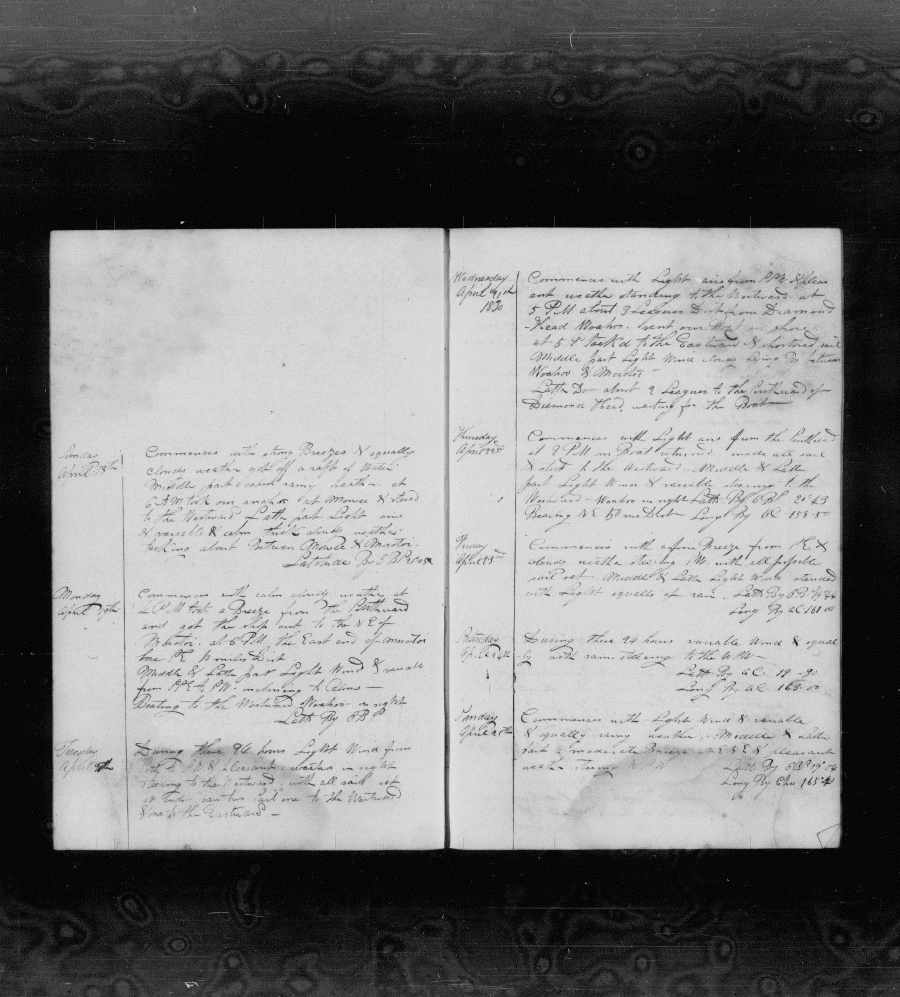 Sunday
April 18th
Commences with strong Breezes & squally
cloudy weather got off a raft of Water
Middle part rainy weather at
6 AM took our anchor at Mowee & steerd
to the Westward Latter part Light airs
& variable & calm thick cloudy weather
beating about Between Mowee & Morotoi
Latitude By O B
Monday
April 19th
Commences with calm cloudy weather at
P M took a Breeze from the Northward
and got the ship out to the N E of
Morotoi at 6 PM the East end of Morotoi
bore miles Dist
Middle & Latter part Light Wind & variable
from to inclineing to Calms —
Beating to the Westward Woahoo in sight
Latt By O B
Tuesday
April
During these 24 hours Light Wind from
& pleasant Woahoo in sight
steering to the Westward with all sail set
saw two Sail one to the Westward
& one to the Eastward —
Wednesday
April 21st
1830
Commences with Light airs from & pleas
ant weather standing to the Westward at
5 PM about 3 Leagues Dist from Diamond
Head Woahoo sent our Boat on shore
at tack'd to the Eastward & shortened sail
Middle part Light Wind cloudy Lying By between
Woahoo & Morotoi —
Latter Do about 2 Leagues to the Southward of
Diamond Head waiting for the Boat
Thursday
April 22nd
Commences with Light airs from the Southward
at 2 PM our Boat returned made all sail
& stood to the Westward Middle & Latter
part Light Wind & variable steering to the
Westward — Woahoo in sight Latt By OB 21°43
Bearing N E 50 ms Dist Long By AC 158-50
Friday
April 23rd
Commences with a fine Breeze from &
cloudy weather steering W with all possible
sail set Middle & Latter Light Wind attended
with Light squalls of rain Latt By OB
Long By AC 161 00
Saturday
April 24th
During these 24 hours variable Wind & squal
ly with rain steering to the W —
Latt By AC 19-90
Long By AC 163-00
Sunday
April 25th
Commences with Light Wind & variable
& squally rainy weather Middle & Latter
part a moderate Breeze & pleasant
weather steering Latt By OB
Long By Chro 165-40